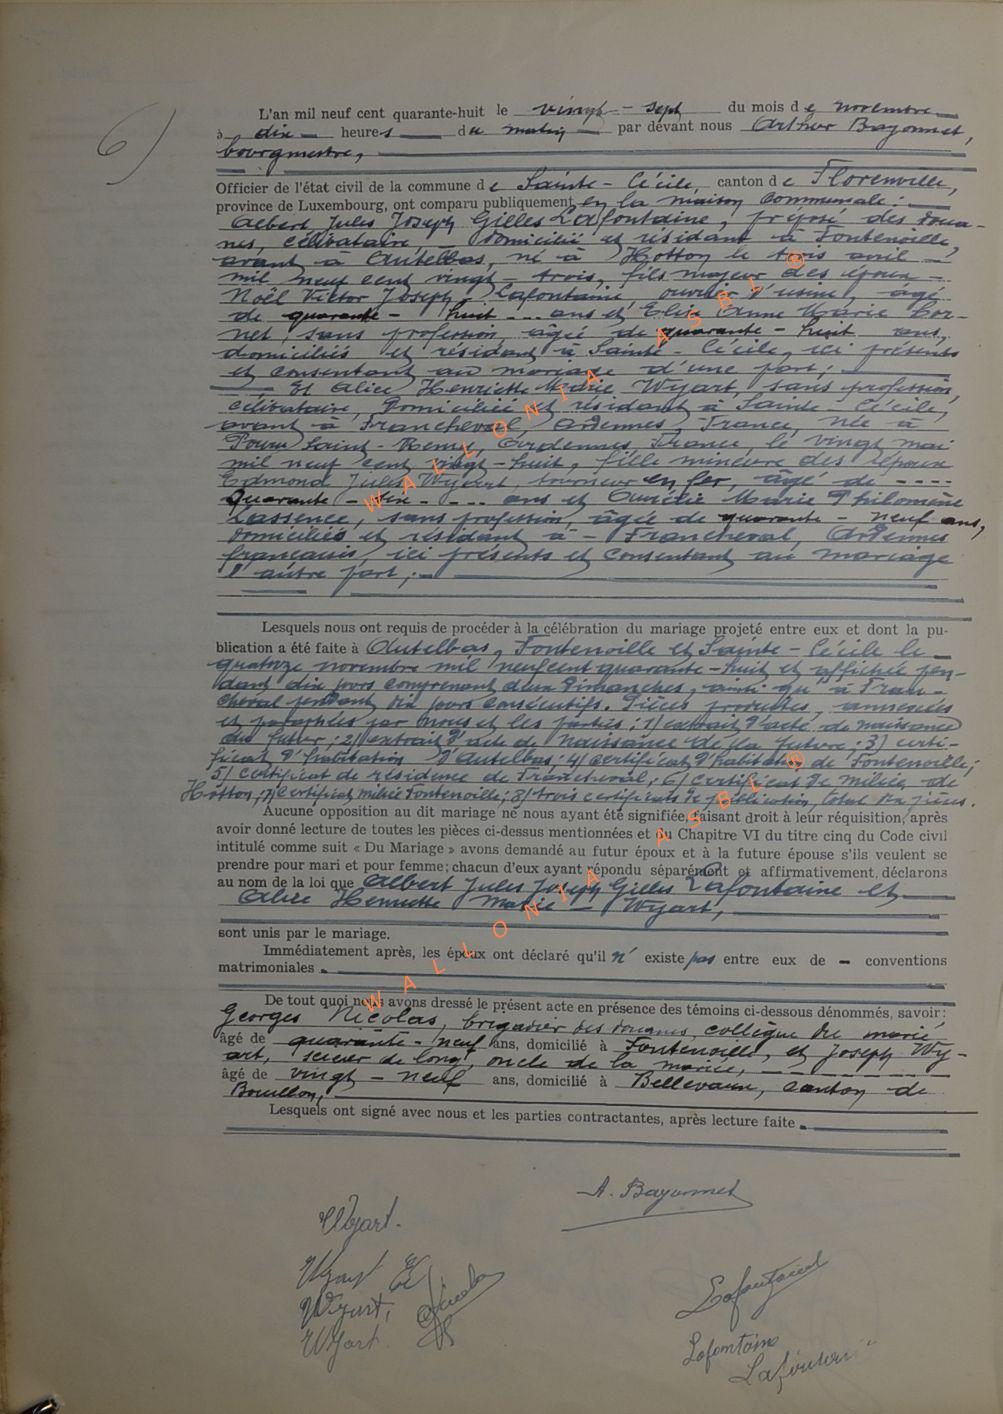 6)
L'an mil neuf cent quarante-huit le vingt-sept du mois de novembre
à dix heures du matin par devant nous Arthur Bayonnet,
bourgmestre,
Officier de l'état civil de la commune de Sainte-Cécile, canton de Florenville,
province de Luxembourg, ont comparu publiquement en la maison communale :
Albert Jules Joseph Gilles Lafontaine, préposé des doua-
nes, célibataire domicilié et résidant à Fontenoille,
avant à Autelbas, né à Hotton le trois avril
mil neuf cent vingt-trois, fils majeur des époux
Noël Victor Joseph Lafontaine, ouvrier d'usine, âgé
de quarante-huit ans et Elise Anne Marie Cor-
net, sans profession, âgée de quarante-huit ans,
domiciliés et résidant à Sainte-Cécile, ici présents
et consentant au mariage d'une part;
Et Alice Henriette Marie Wyart, sans profession,
célibataire, domiciliée et résidant à Sainte-Cécile,
avant à Francheval, Ardennes, France, née à
Pouru Saint-Remy, Ardennes, France le vingt mai
mil neuf cent vingt-huit, fille mineure des époux
Edmond Jules Wyart, tourneur en fer, âgé de ----
quarante - ---- ans et Aurélie Marie Philomène
Lassence, sans profession, âgée de quarante-neuf ans,
domiciliés et résidant à - Francheval, Ardennes
françaises, ici présents et consentant au mariage
d'autre part;
Lesquels nous ont requis de procéder à la célébration du mariage projeté entre eux et dont la pu-
blication a été faite à Autelbas, Fontenoille et Sainte-Cécile le
quatorze novembre mil neuf cent quarante-huit et affichée pen-
dant dix jours comprenant deux dimanches, ainsi qu'à Fran-
cheval pendant dix jours consécutifs. Pièces produites, annexées
et paraphées par nous et les parties : 1) extrait d'acte de naissance
du futur; 2) extrait d'acte de naissance de la future; 3) certi-
ficat d'habitation d'Autelbas; 4) certificat d'habitation de Fontenoille;
5) certificat de résidence de Francheval; 6) certificat de milice de
Hotton; 7) certificat milice Fontenoille; 8) trois certificats de publication, total dix pièces.
Aucune opposition au dit mariage ne nous ayant été signifiée, faisant droit à leur réquisition, après
avoir donné lecture de toutes les pièces ci-dessus mentionnées et du Chapitre VI du titre cinq du Code civil
intitulé comme suit « Du Mariage » avons demandé au futur époux et à la future épouse s'ils veulent se
prendre pour mari et pour femme; chacun d'eux ayant répondu séparément et affirmativement, déclarons
au nom de la loi que Albert Jules Joseph Gilles Lafontaine et
Alice Henriette Marie Wyart,
sont unis par le mariage.
Immédiatement après, les époux ont déclaré qu'il n'existe pas entre eux de - conventions
matrimoniales.
De tout quoi nous avons dressé le présent acte en présence des témoins ci-dessous dénommés, savoir :
Georges Nicolas, brigadier des douanes, collègue du marié
âgé de quarante-neuf ans, domicilié à Fontenoille, et Joseph Wy-
art, scieur de long, oncle de la mariée,
âgé de vingt-neuf ans, domicilié à Bellevaux, canton de
Bouillon,
Lesquels ont signé avec nous et les parties contractantes, après lecture faite.
A. Bayonnet
Wyart.
Wyart E
Wyart, GNicolas
Wyart.
Lafontaine
Lafontaine
Lafontaine
WALLONIA ASBL ®
WALLONIA ASBL ®